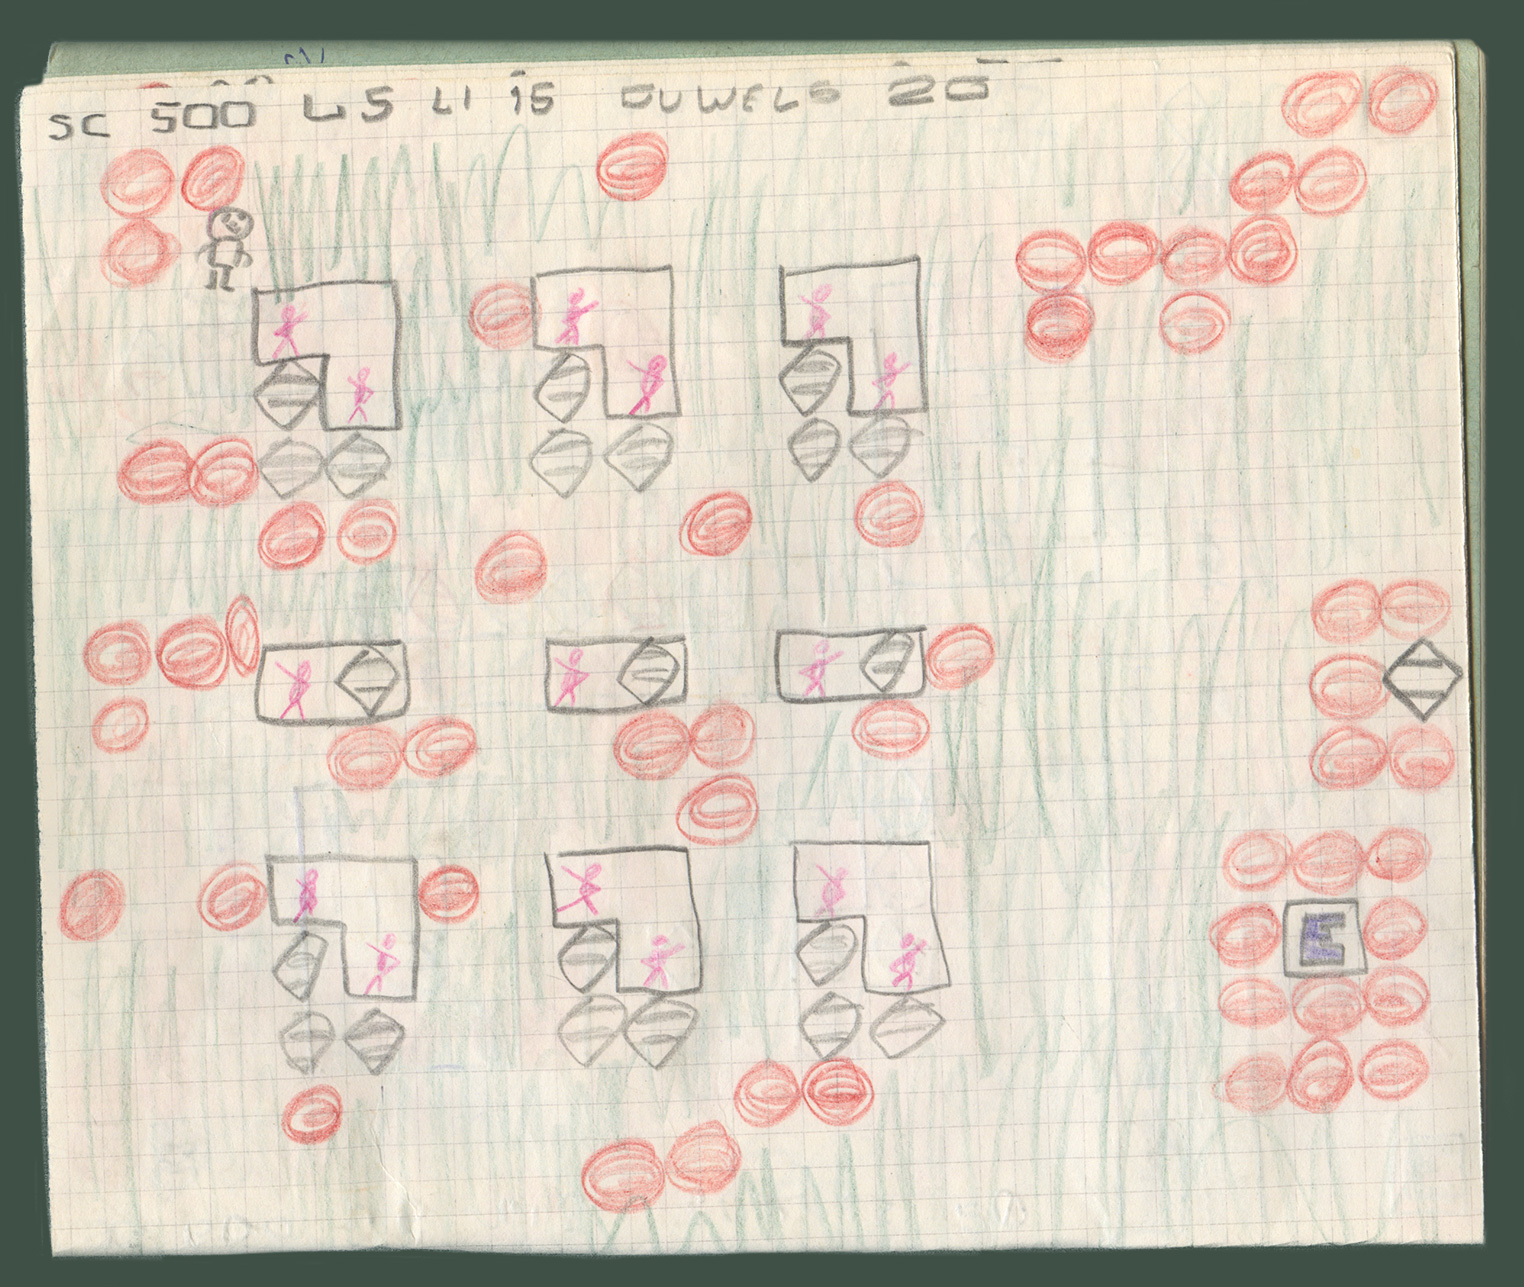 SC 500 L5 LI 15 DUWELS 20
E